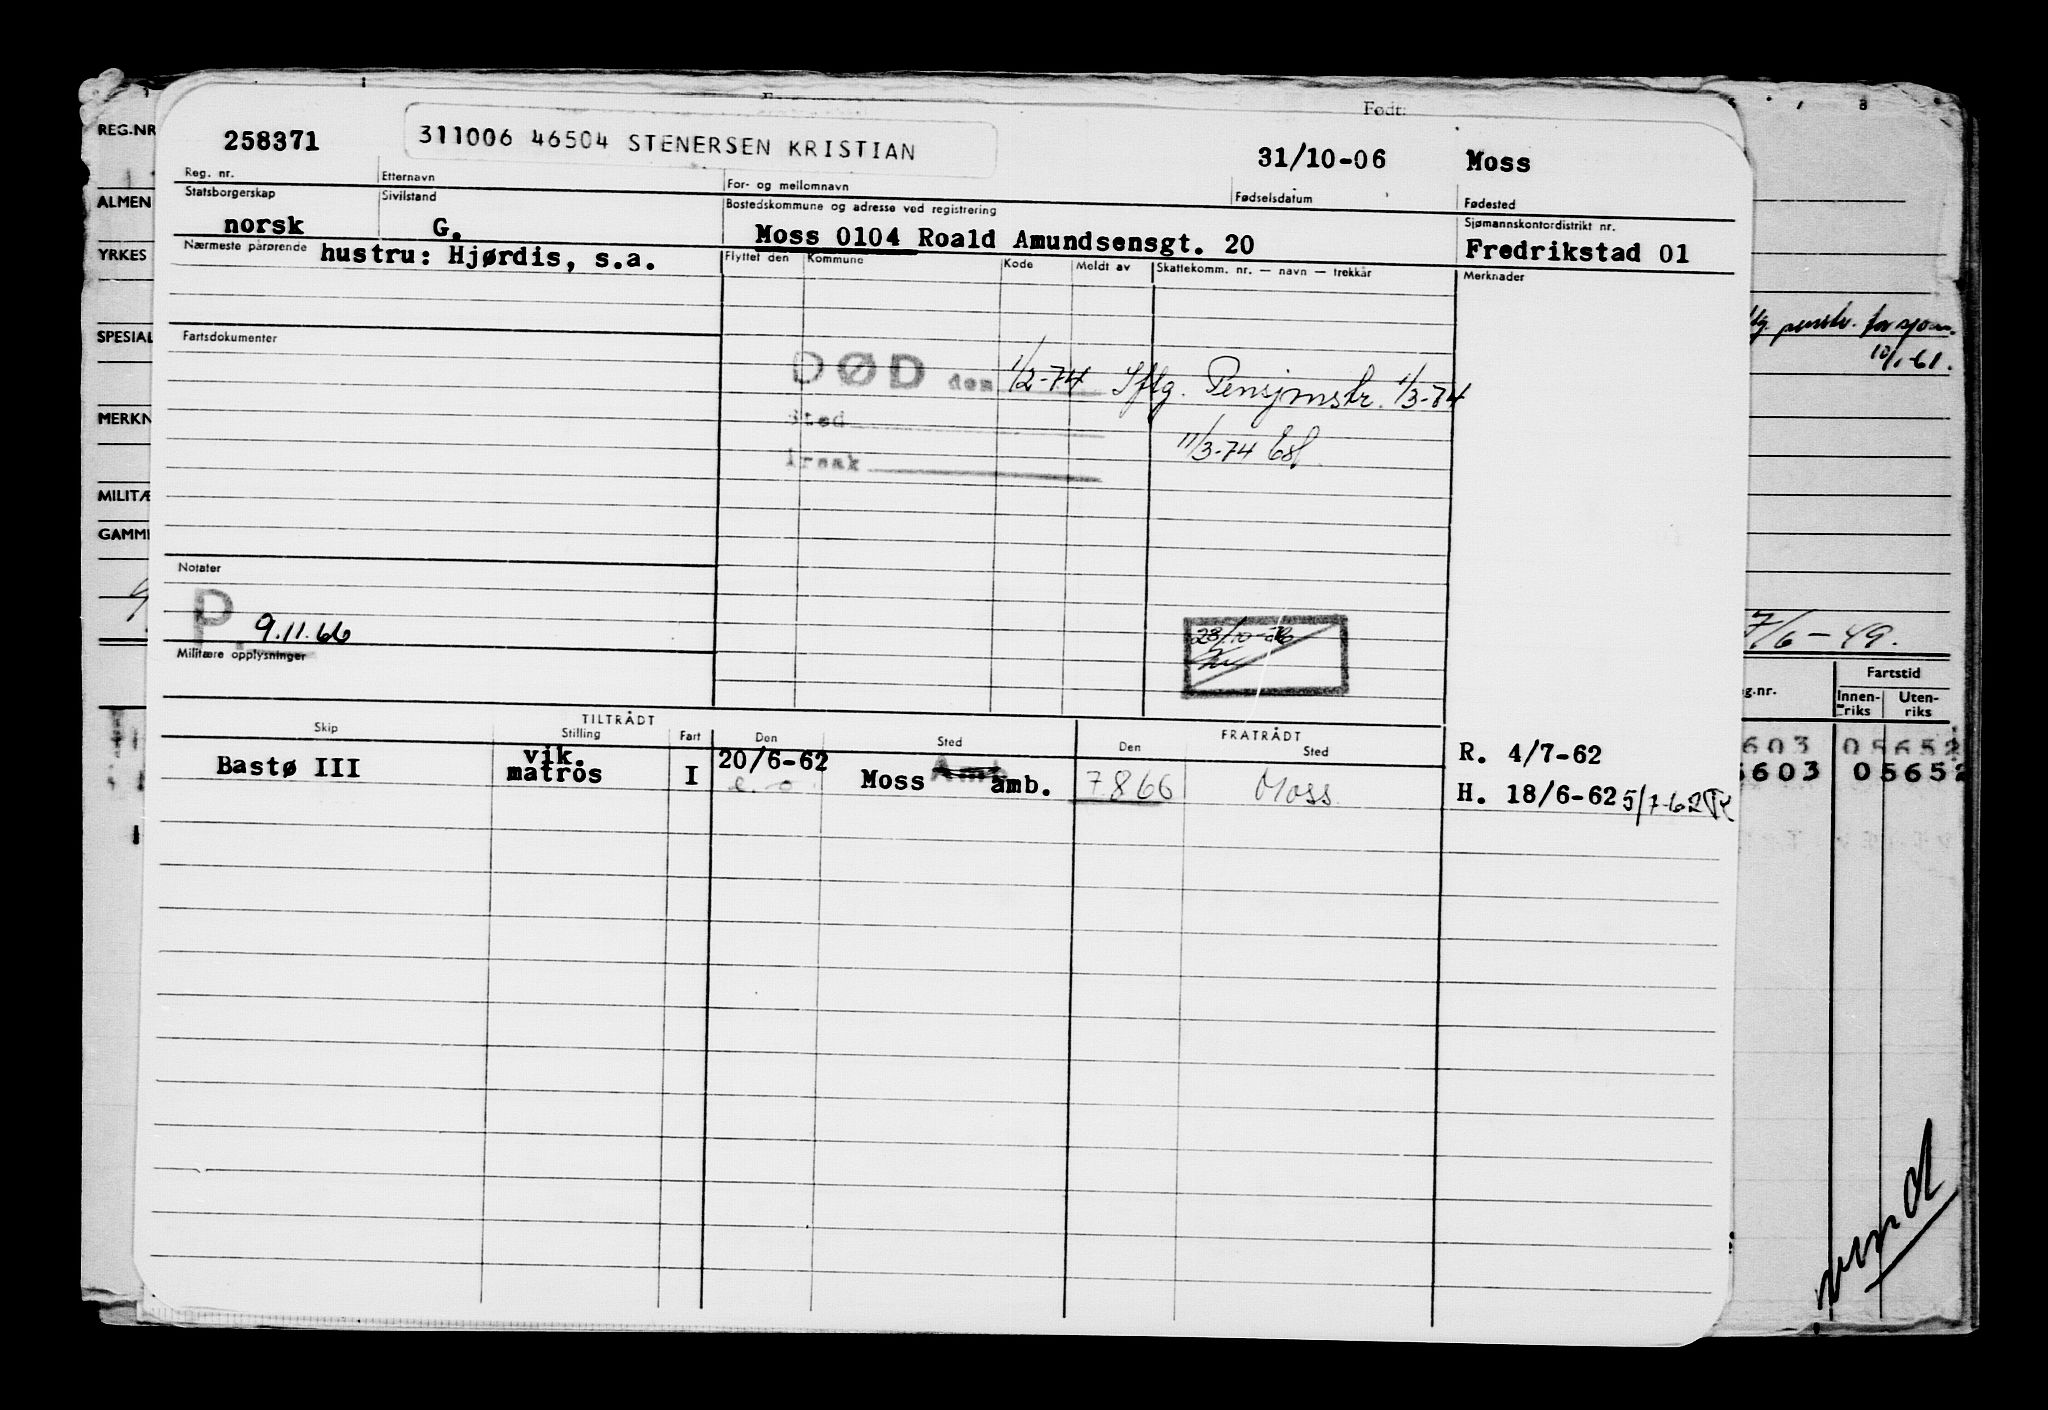 Født:
REG.NR
258371
311006 46504 STENERSEN KRISTIAN
31/10-06
Moss
Reg. nr.
Etternavn
For- og mellomnavn
Fødselsdatum
Fødested
ALMEN
Statsborgerskap
Sivilstand
Bostedskommune og adresse ved registrering
Sjømannskontordistrikt nr.
norsk
G.
Moss 0104 Roald Amundsensgt. 20
Fredrikstad 01
YRKES
Nærmeste pårørende
hustru: Hjørdis, s.a.
Flyttet den
Kommune
Kode
Meldt av
Skattekomm. nr. — navn — trekkår
Merknader
SPESIAL
Fartsdokumenter
penstr. for sjøm.
10/1-61.
DØD den 1/2-74 Iflg. Pensjonstr. 1/3-74
Sted
Årsak
11/3-74
MERKN
MILITÆ
GAMME
Notater
P. 9.11.66
28/10-
Militære opplysninger
7/6-49.
g.nr.
Fartstid
Innen-
riks
Uten-
riks
TILTRÅDT
FRATRÅDT
Skip
Stilling
Fart
Den
Sted
Den
Sted
603 05652
5603 05652
Bastø III
vik.
matros
I
20/6-62
Moss
amb.
7.8.66
Moss
R. 4/7-62
H. 18/6-62 5/7-62